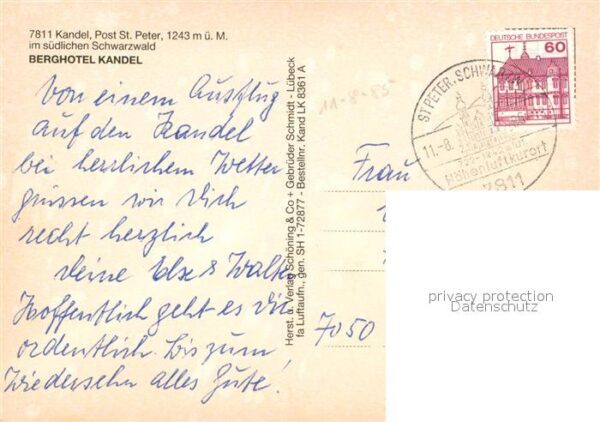 7811 Kandel, Post St. Peter, 1243 m ü. M.
im südlichen Schwarzwald
BERGHOTEL KANDEL
Von einem Ausflug
auf den Kandel
bei herrlichem Wetter
grüssen wir Dich
recht herzlich
Deine Else & Walter
Hoffentlich geht es Dir
ordentlich. Bis zum
Wiedersehn alles Gute!
Herst. u. Verlag Schöning & Co + Gebrüder Schmidt - Lübeck
fa Luftaufn., gen. SH 1-72877 - Bestellnr. Kand LK 8361 A
11-8-85
DEUTSCHE BUNDESPOST
60
ST PETER, SCHWARZW
11.-8.
Höhenluftkurort
7811
Frau
7050
privacy protection
Datenschutz